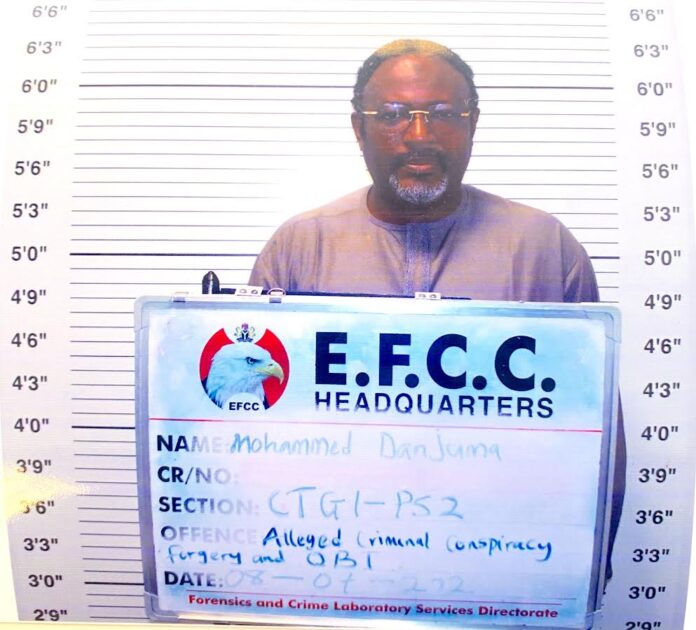 6'6" 6'6"
6'3" 6'3"
6'0" 6'0"
5'9" 5'9"
5'6" 5'6"
5'3" 5'3"
5'0" 5'0"
4'9" 4'9"
4'6" 4'6"
4'3" 4'3"
4'0" 4'0"
3'9" 3'9"
3'6" 3'6"
3'3" 3'3"
3'0" 3'0"
2'9" 2'9"
EFCC
E.F.C.C.
HEADQUARTERS
NAME: Mohammed Danjuma
CR/NO:
SECTION: CTGI-PS2
OFFENCE: Alleged Criminal Conspiracy
forgery and OBT
DATE: 08-07-222
Forensics and Crime Laboratory Services Directorate